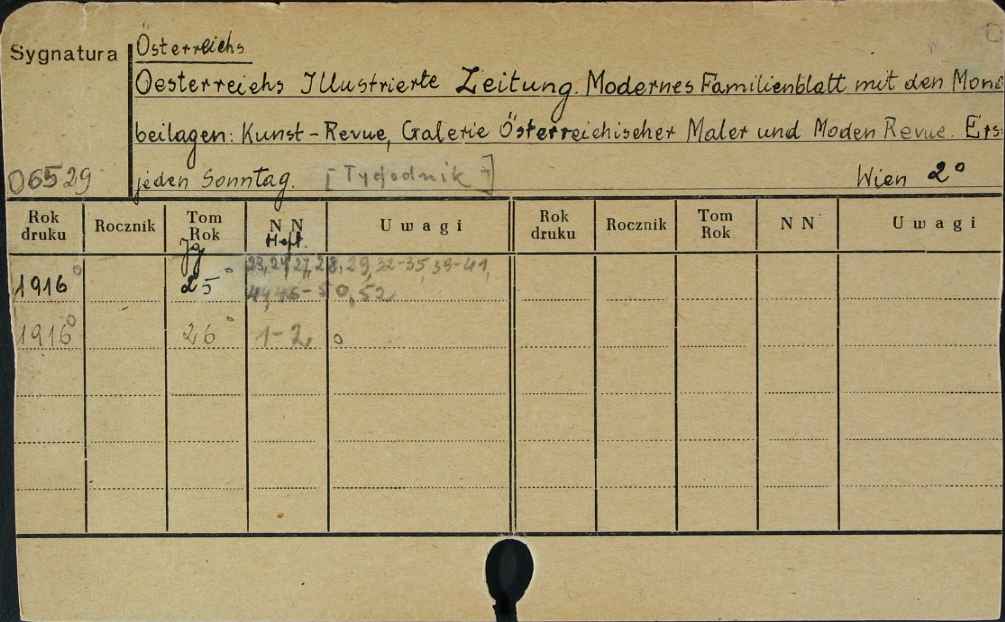 Sygnatura
Österreichs
Oesterreichs Illustrierte Zeitung. Modernes Familienblatt mit den Mona
beilagen: Kunst-Revue, Galerie Österreichischer Maler und Moden Revue. Ers
06529 jeden Sonntag. [Tygodnik] Wien 2°
Rok druku Rocznik Tom Rok N N Uwagi Rok druku Rocznik Tom Rok N N Uwagi
Jg Heft.
23, 24, 27, 28, 29, 32-35, 39-41,
1916° 25° 44, 46-50, 52
1916° 26° 1-2,